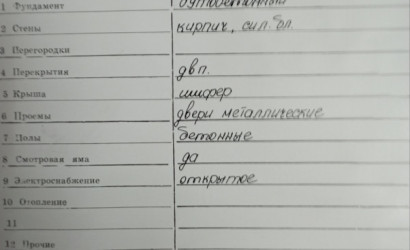 1 Фундамент бутобетонный
2 Стены кирпич, сил. бл.
3 Перегородки
4 Перекрытия двп.
5 Крыша шифер
6 Проемы двери металлические
7 Полы бетонные
8 Смотровая яма да
9 Электроснабжение открытое
10 Отопление
11
12 Прочие